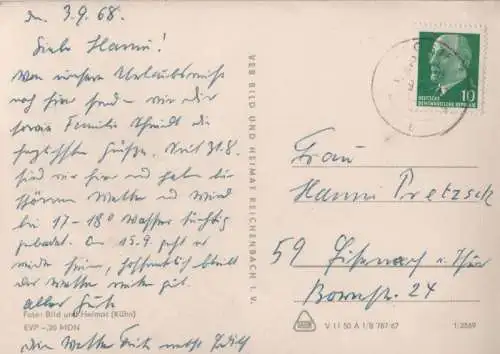 d. 3.9.68.
Liebe Hanni!
Von unserer Urlaubsreise
wir Dir
sowie Familie Schmidt die
herzlichsten Grüße. Seit 31.8.
sind wir hier und haben bei
Wetter und Wind
bei 17-18° Wasser tüchtig
gebadet. Am 15.9. geht es
wieder heim, hoffentlich bleibt
das Wetter weiter gut.
alles Gute
Foto: Bild und Heimat (Kühn)
EVP -,20 MDN
VEB BILD UND HEIMAT REICHENBACH I. V.
10
DEUTSCHE
DEMOKRATISCHE REPUBLIK
Frau
Hanni Pretzsch
59 Eisenach i. Thür
24
V 11 50 A 1/B 787 67
1/2569